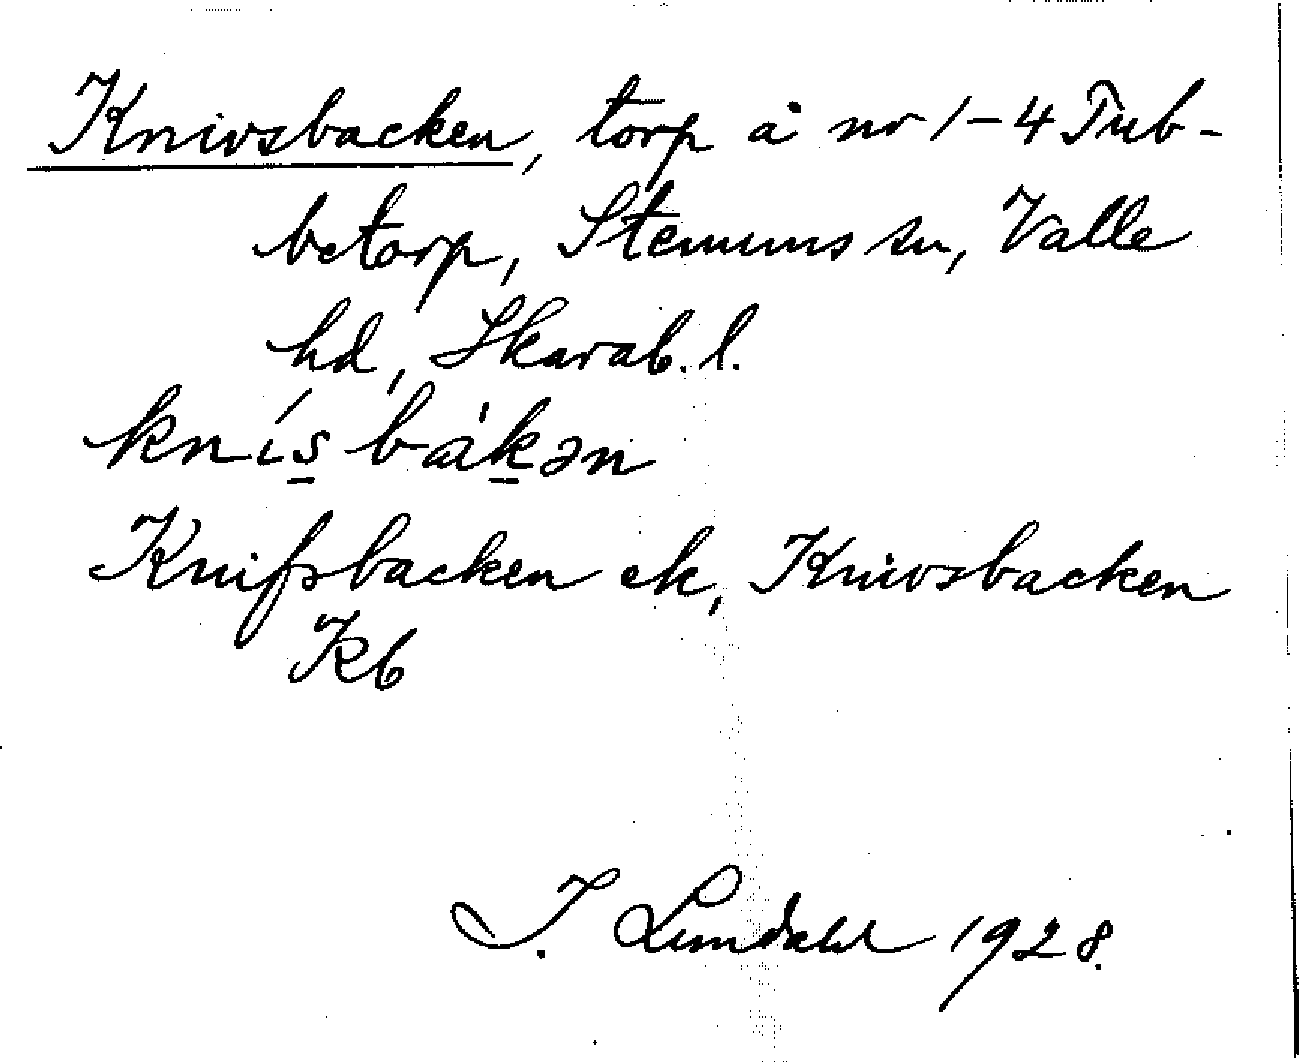 Knivsbacken, torp å nr 1-4 Tub-
betorp, Stenums sn, Valle
hd, Skarab. l.
knís bàkən
Knifsbacken ek, Knivsbacken
Kb
I. Lundahl 1928.